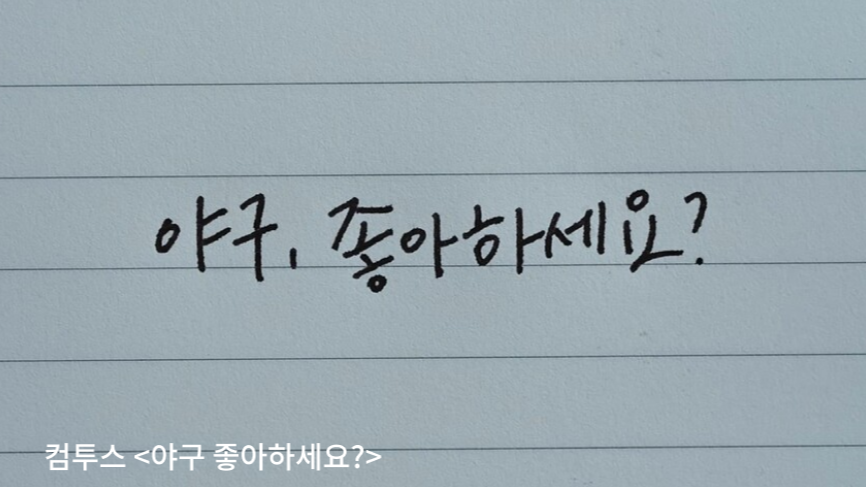 야구, 좋아하세요?
컴투스 <야구 좋아하세요?>